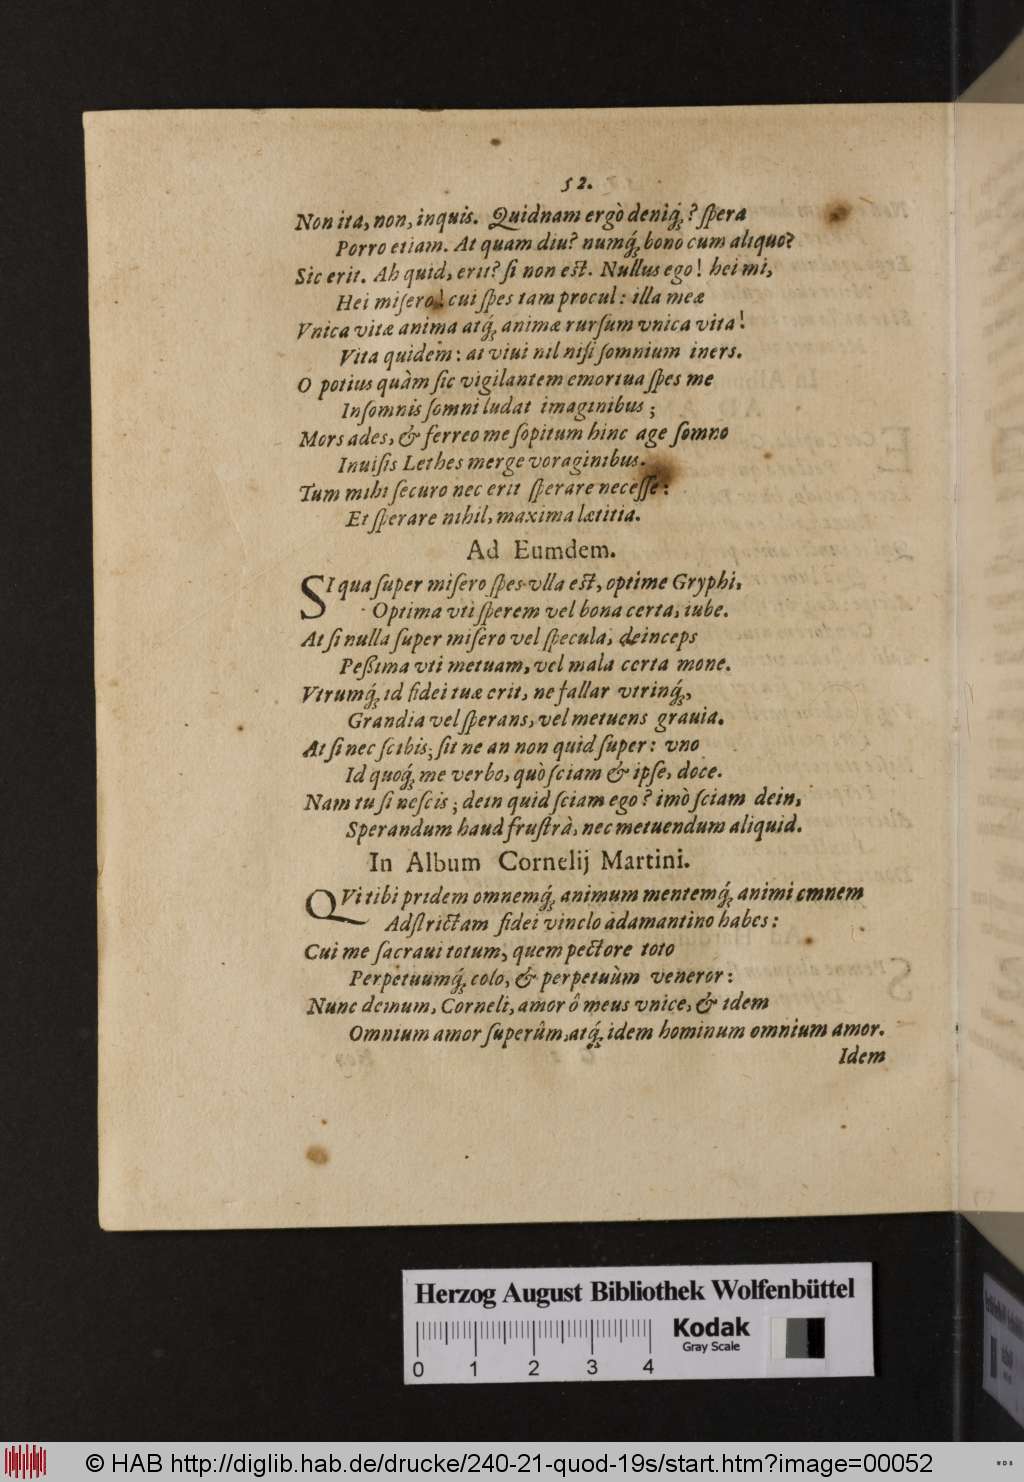 52.
Non ita, non, inquis. Quidnam ergò deniq́ꝫ? ſpera
Porro etiam. At quam diu? numq́ꝫ bono cum aliquo?
Sic erit. Ah quid, erit? ſi non eſt. Nullus ego! hei mi,
Hei miſero! cui ſpes tam procul: illa meæ
Vnica vitæ anima atq́ꝫ animæ rurſum vnica vita!
Vita quidem: at viui nil niſi ſomnium iners.
O potius quàm ſic vigilantem emortua ſpes me
Inſomnis ſomni ludat imaginibus;
Mors ades, & ferreo me ſopitum hinc age ſomno
Inuiſis Lethes merge voraginibus.
Tum mihi ſecuro nec erit ſperare neceſſe:
Et ſperare nihil, maxima lætitia.
Ad Eumdem.
SI qua ſuper miſero ſpes vlla eſt, optime Gryphi,
Optima vti ſperem vel bona certa, iube.
At ſi nulla ſuper miſero vel ſpecula, deinceps
Peßima vti metuam, vel mala certa mone.
Vtrumq́ꝫ id fidei tuæ erit, ne fallar vtrinq́ꝫ,
Grandia vel ſperans, vel metuens grauia.
At ſi nec ſcibis; ſit ne an non quid ſuper: vno
Id quoq́ꝫ me verbo, quò ſciam & ipſe, doce.
Nam tu ſi neſcis; dein quid ſciam ego? imò ſciam dein,
Sperandum haud fruſtrà, nec metuendum aliquid.
In Album Cornelij Martini.
QVi tibi pridem omnemq́ꝫ animum mentemq́ꝫ animi omnem
Adſtrictam fidei vinclo adamantino habes:
Cui me ſacraui totum, quem pectore toto
Perpetuumq́ꝫ colo, & perpetuùm veneror:
Nunc demum, Corneli, amor ô meus vnice, & idem
Omnium amor ſuperûm, atq́ꝫ idem hominum omnium amor.
Idem
Herzog August Bibliothek Wolfenbüttel
Kodak
Gray Scale
0 1 2 3 4
© HAB http://diglib.hab.de/drucke/240-21-quod-19s/start.htm?image=00052